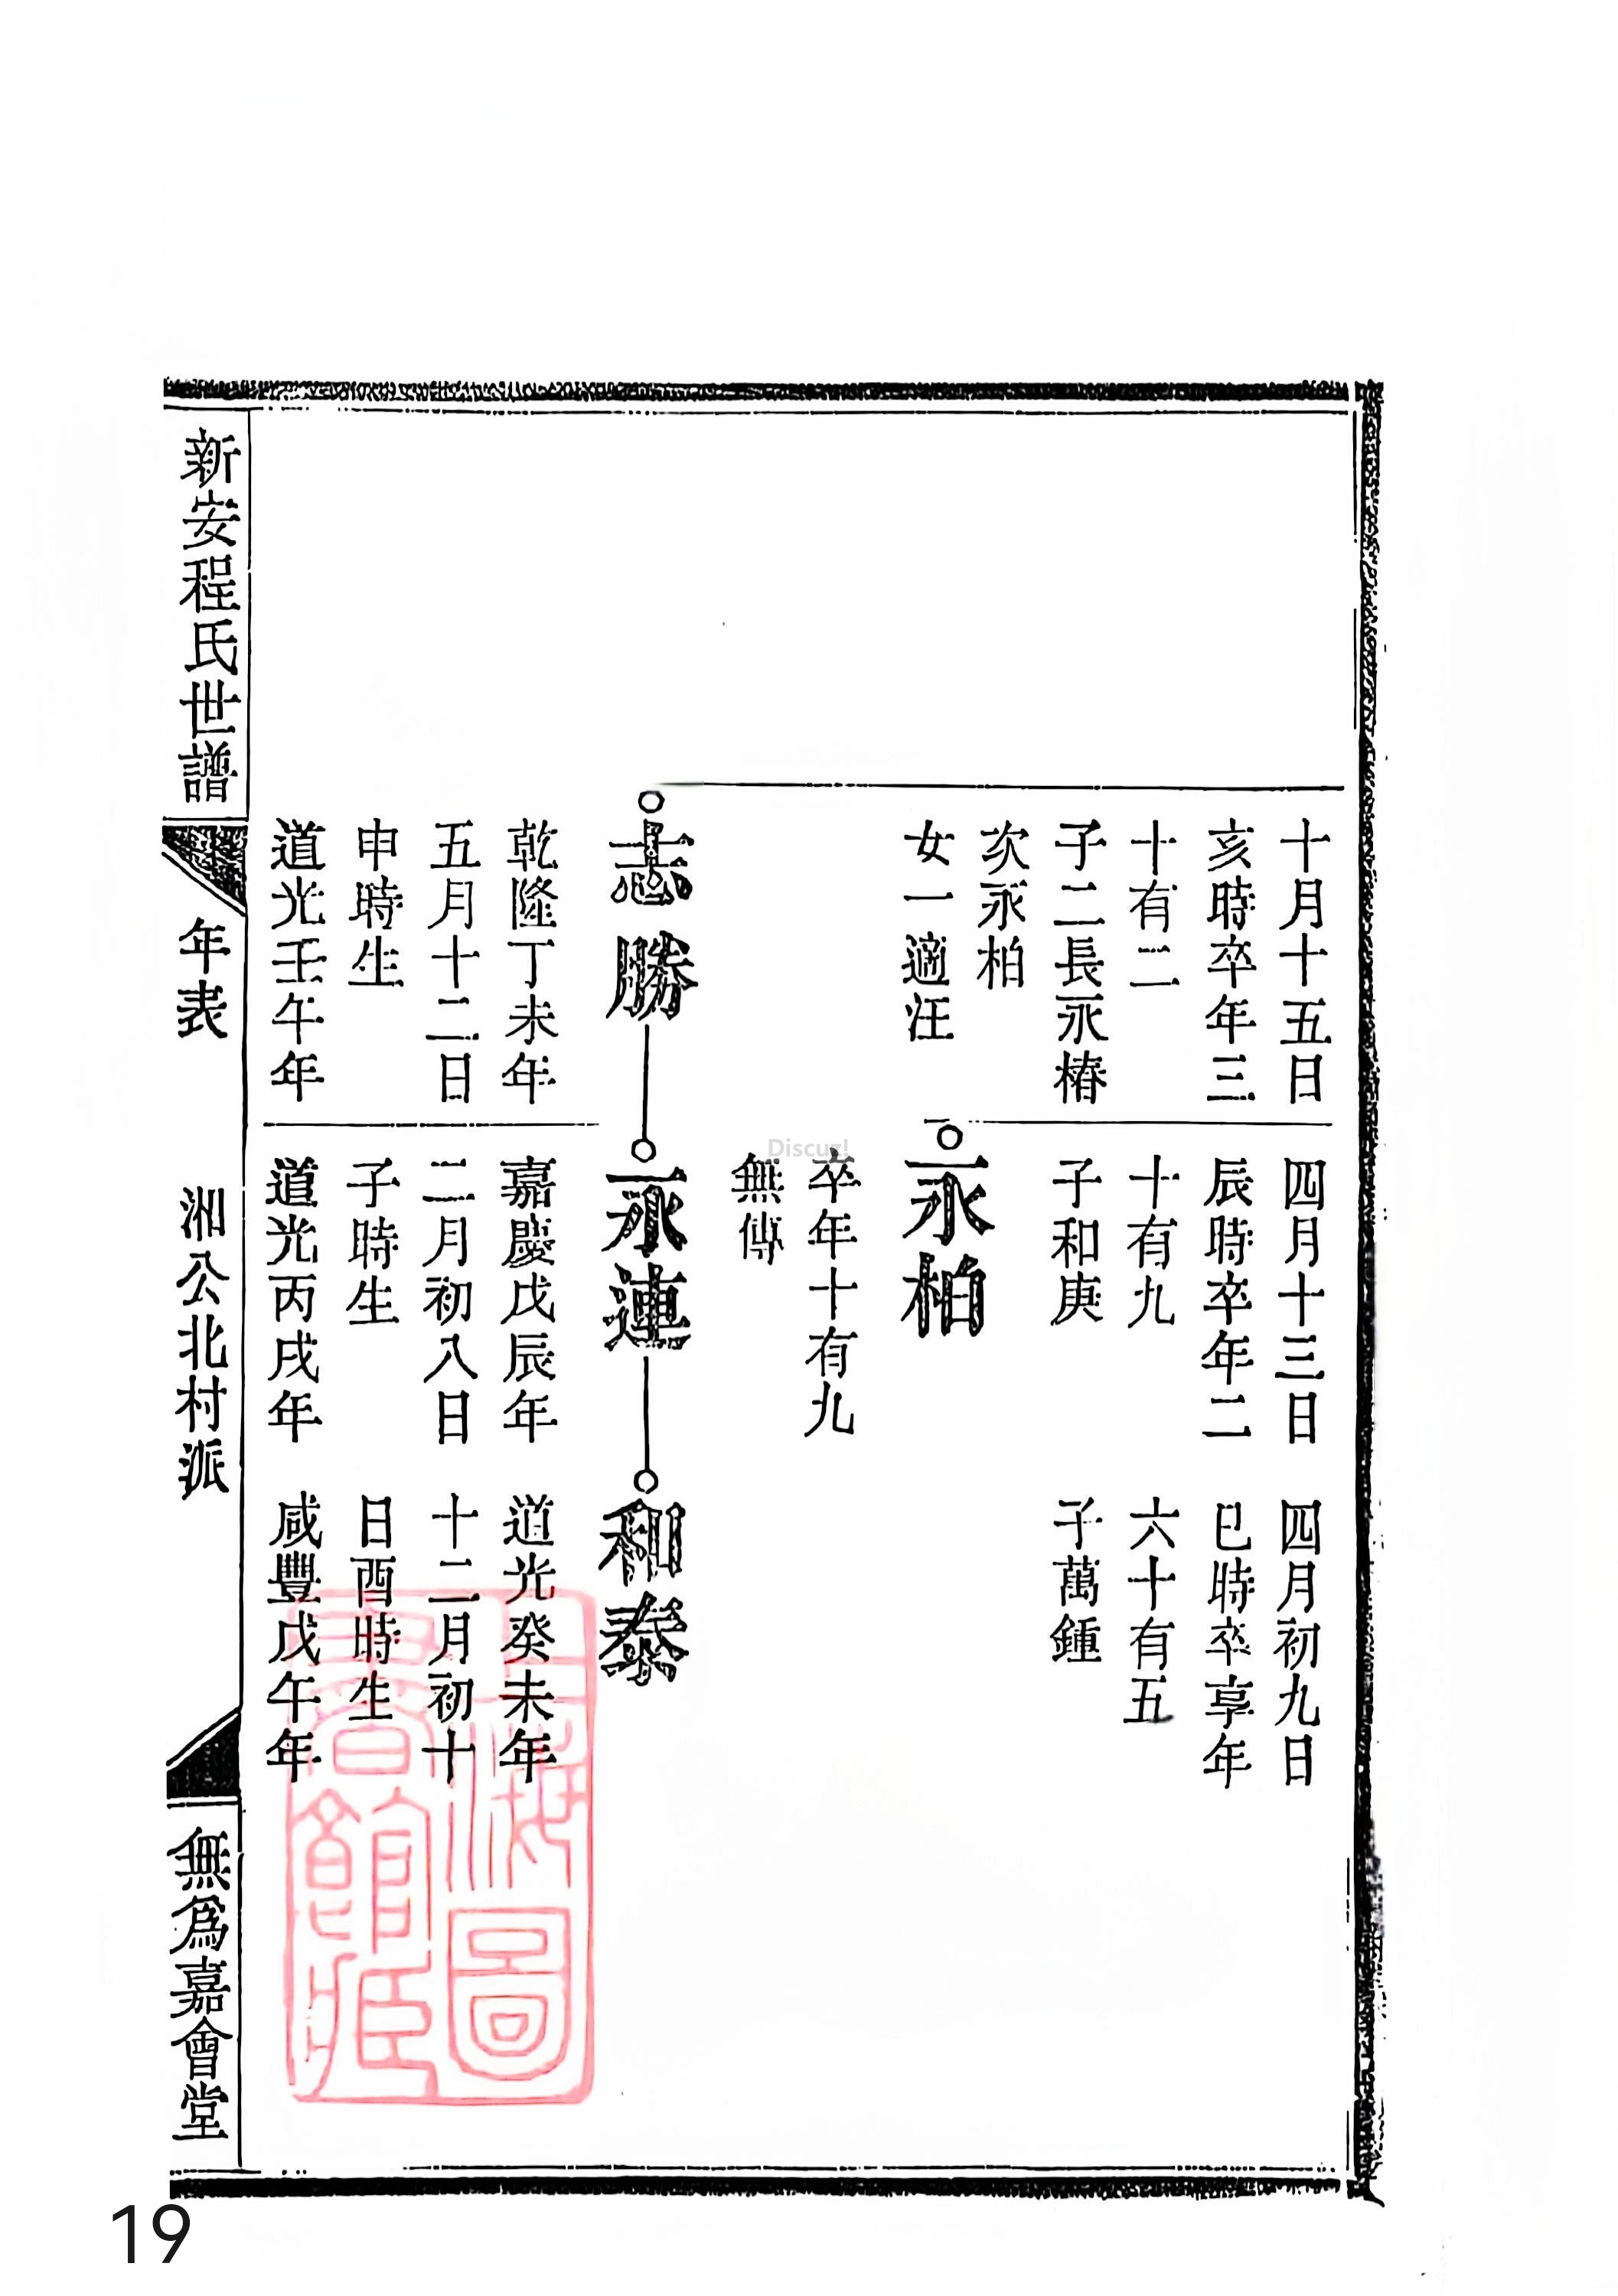 十月十五日
亥時卒年三
十有二
子二長永椿
次永柏
女一適汪
四月十三日
辰時卒年二
十有九
子和庚
永柏
卒年十有九
無傳
四月初九日
巳時卒享年
六十有五
子萬鍾
志勝
乾隆丁未年
五月十二日
申時生
道光壬午年
永連
嘉慶戊辰年
二月初八日
子時生
道光丙戌年
和泰
道光癸未年
十二月初十
日酉時生
咸豐戊午年
新安程氏世譜
年表
湘公北村派
無爲嘉會堂
上海圖
書館藏
Discuz!
19